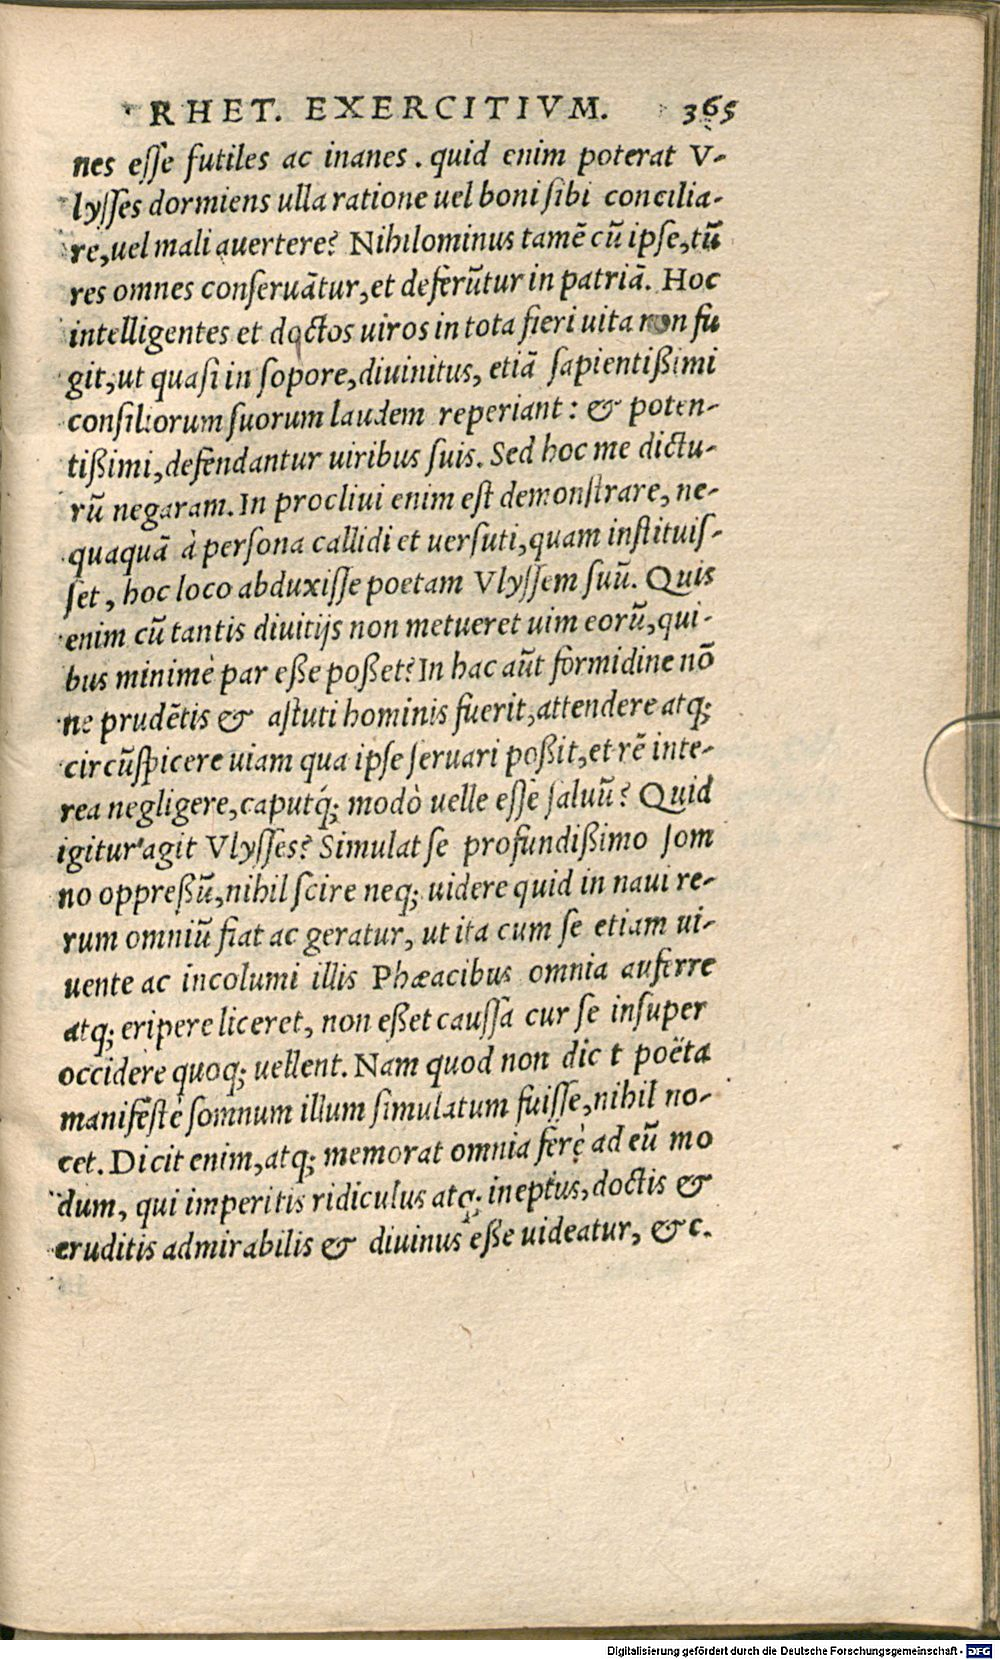 RHET. EXERCITIVM. 365
nes eſſe futiles ac inanes. quid enim poterat V-
lyſſes dormiens ulla ratione uel boni ſibi concilia-
re, uel mali auertere? Nihilominus tamē cū ipſe, tū
res omnes conſeruātur, et deferūtur in patriā. Hoc
intelligentes et doctos uiros in tota fieri uita non fu
git, ut quaſi in ſopore, diuinitus, etiā ſapientißimi
conſiliorum ſuorum laudem reperiant: & poten-
tißimi, defendantur uiribus ſuis. Sed hoc me dictu-
rū negaram. In procliui enim eſt demonſtrare, ne-
quaquā à perſona callidi et uerſuti, quam inſtituiſ-
ſet, hoc loco abduxiſſe poetam Vlyſſem ſuū. Quis
enim cū tantis diuitijs non metueret uim eorū, qui-
bus minimè par eße poßet? In hac aūt formidine nō
ne prudētis & aſtuti hominis fuerit, attendere atq;
circūſpicere uiam qua ipſe ſeruari poßit, et rē inte-
rea negligere, caputq́; modò uelle eſſe ſaluū? Quid
igitur agit Vlyſſes? Simulat ſe profundißimo ſom
no oppreßū, nihil ſcire neq; uidere quid in naui re-
rum omniū fiat ac geratur, ut ita cum ſe etiam ui-
uente ac incolumi illis Phæacibus omnia auferre
atq; eripere liceret, non eßet cauſſa cur ſe inſuper
occidere quoq; uellent. Nam quod non dic t poëta
manifeſtè ſomnum illum ſimulatum fuiſſe, nihil no-
cet. Dicit enim, atq; memorat omnia ferè ad eū mo
dum, qui imperitis ridiculus atq; ineptus, doctis &
eruditis admirabilis & diuinus eße uideatur, &c.
Digitalisierung gefördert durch die Deutsche Forschungsgemeinschaft - DFG